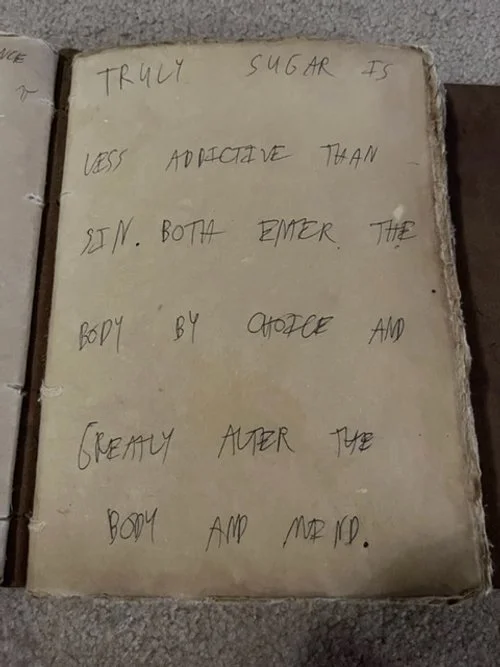 TRULY SUGAR IS
LESS ADDICTIVE THAN
SIN. BOTH ENTER THE
BODY BY CHOICE AND
GREATLY ALTER THE
BODY AND MIND.